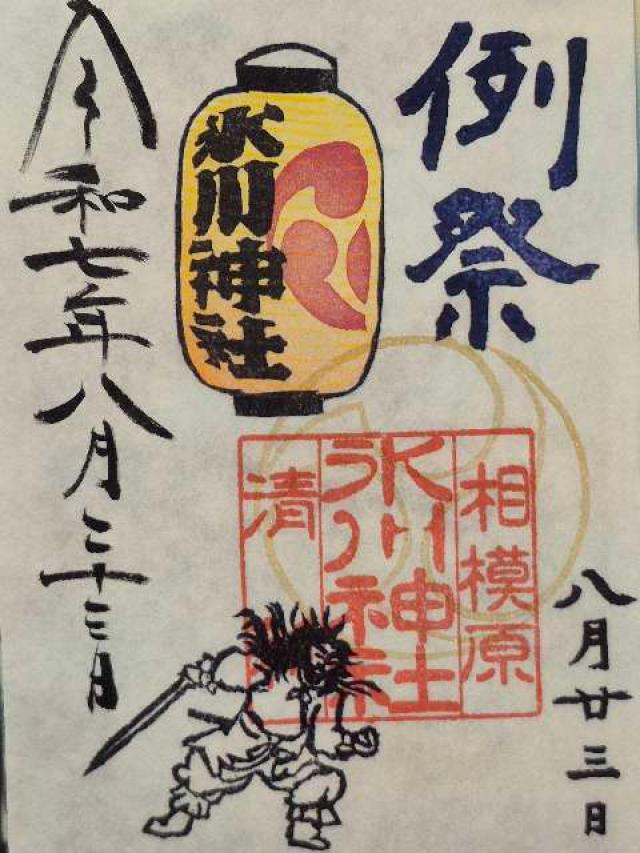 例祭
八月廿三日
氷川神社
相模原
氷川神社
清
令和七年八月二十三日